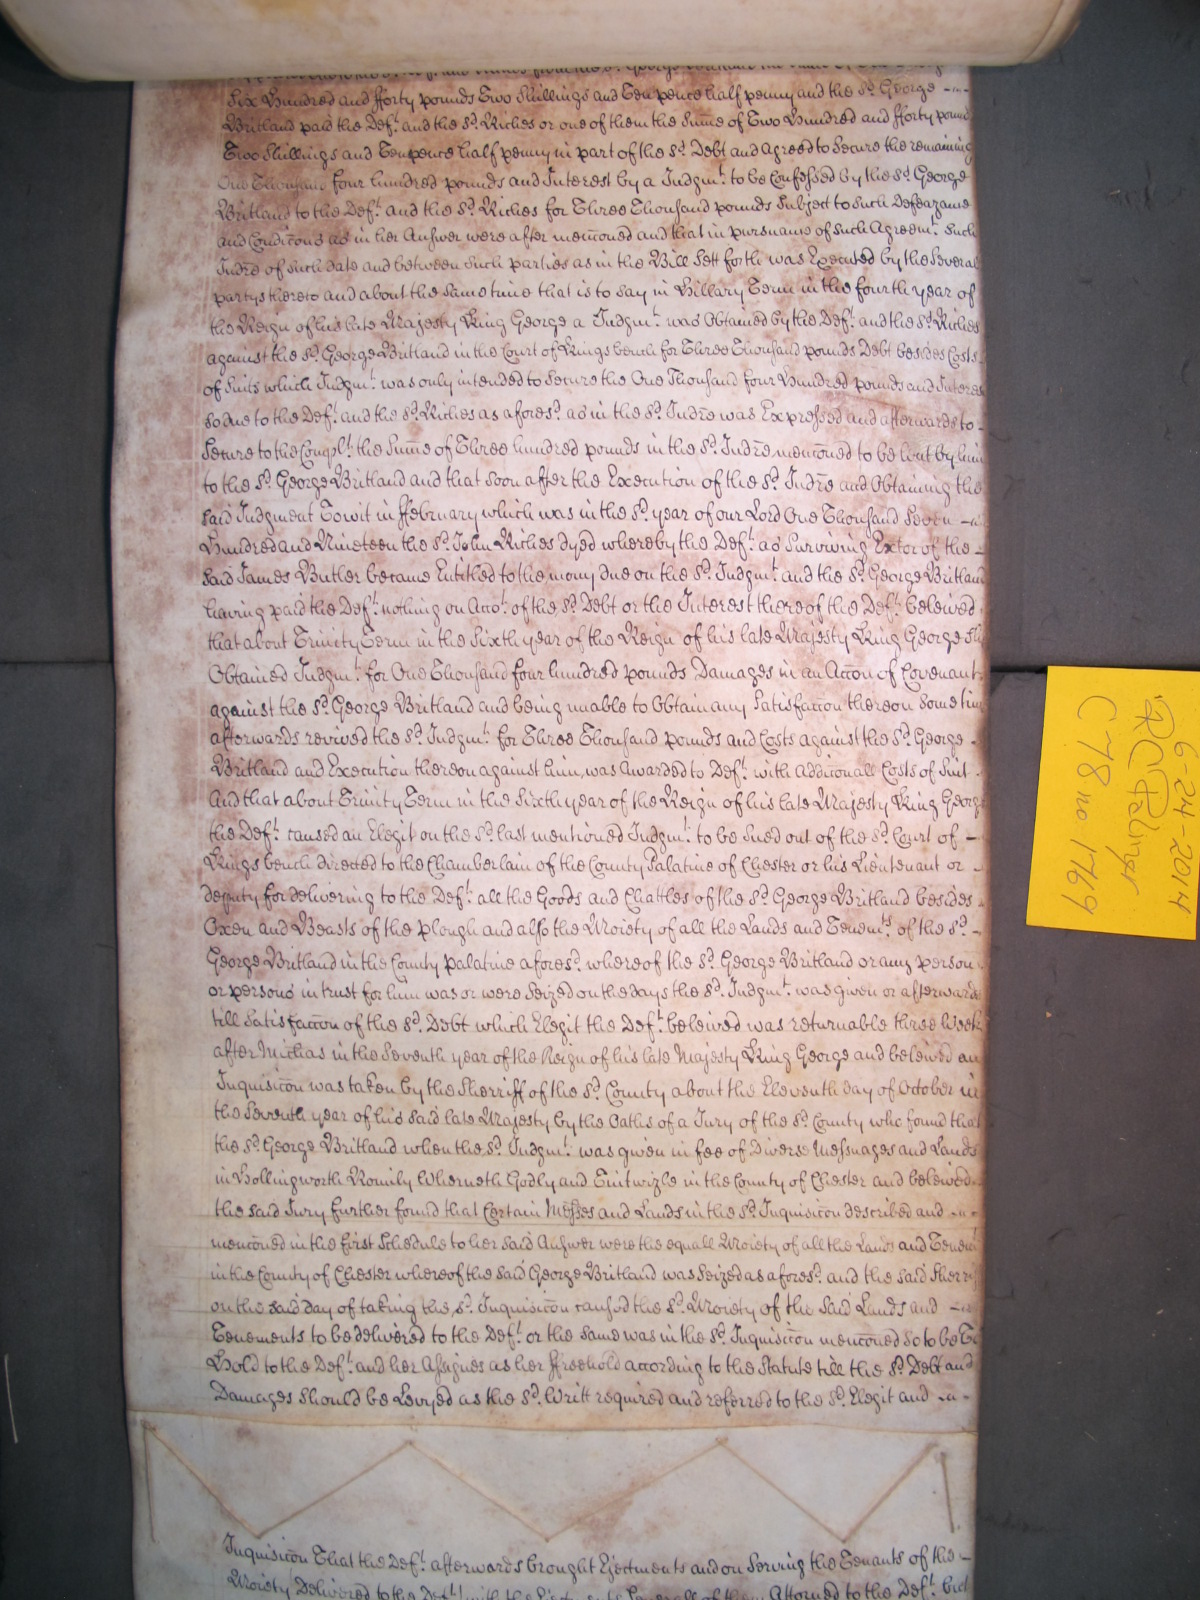 Six Hundred and fforty pounds Two Shillings and Ten pence half penny and the sd. George
Britland paid the Deft. and the sd. Riches or one of them the Sume of Two Hundred and fforty pound
Two Shillings and Tenpence half penny in part of the sd. Debt and agreed to Secure the remaining
One Thousand four hundred pounds and Interest by a Judgmt. to be Confessed by the sd. George
Britland to the Deft. and the sd. Riches for Three Thousand pounds Subject to such Defeazance
and Condicons as in her Answer were after mencioned and that in pursuance of such Agreemt. Such
Indre of such date and between such parties as in the Bill Sett forth was Executed by the Several
partys thereto and about the same time that is to say in Hillary Term in the fourth year of
the Reign of his late Majesty King George a Judgmt. was Obtained by the Deft. and the sd. Riches
against the sd. George Britland in the Court of Kings bench for Three Thousand pounds Debt besides Costs
of Suits which Judgmt. was only intended to Secure the One Thousand four Hundred pounds and Interest
so due to the Deft. and the sd. Riches as aforesd. as in the sd. Indre was Expressed and afterwards to
Secure to the Complt. the Sume of Three hundred pounds in the sd. Indre mencioned to be lent by him
to the sd. George Britland and that soon after the Execution of the sd. Indre and Obtaining the
said Judgment Towit in ffebruary which was in the sd. year of our Lord One Thousand Seven
Hundred and Nineteen the sd. John Riches dyed whereby the Deft. as Surviving Extor of the
said James Butler became Entitled to the mony due on the sd. Judgmt. and the sd. George Britland
having paid the Deft. nothing on Acco:t of the sd. Debt or the Interest thereof the Deft. beleived
that about Trinity Term in the Sixth year of the Reign of his late Majesty King George She
Obtained Judgmt. for One Thousand four hundred pounds Damages in an Accon of Covenant
against the sd. George Britland and being unable to Obtain any Satisfaccon thereon some time
afterwards revived the sd. Judgmt. for Three Thousand pounds and Costs against the sd. George
Britland and Execution thereon against him was Awarded to Deft. with Addiconall Costs of Suit
And that about Trinity Term in the Sixth year of the Reign of his late Majesty King George
the Deft. caused an Elegit on the sd. last mentioned Judgmt. to be sued out of the sd. Court of
Kings bench directed to the Chamberlain of the County Palatine of Chester or his Lieutenant or
deputy for delivering to the Deft. all the Goods and Chattles of the sd. George Britland besides
Oxen and Beasts of the plough and also the Moiety of all the Lands and Tenemts. of the sd.
George Britland in the County palatine aforesd. whereof the sd. George Britland or any person
or persons in trust for him was or were Seized on the days the sd. Judgmt. was given or afterwards
till Satisfaccon of the sd. Debt which Elegit the Deft. beleived was returnable three Week
after Michas in the Seventh year of the Reign of his late Majesty King George and beleived an
Inquisicon was taken by the Sherriff of the sd. County about the Eleventh day of October in
the Seventh year of his said late Majesty by the Oaths of a Jury of the sd. County who found that
the sd. George Britland when the sd. Judgmt. was given in fee of Diverse Messuages and Lands
in Hollingworth Romily Wherneth Godly and Tintwizle in the County of Chester and beleived
the said Jury further found that Certain Messes and Lands in the sd. Inquisicon described and
mencioned in the first Schedule to her said Answer were the equall Moiety of all the Lands and Tenemts
in the County of Chester whereof the said George Britland was Seized as aforesd. and the said Sherriff
on the said day of taking the sd. Inquisicon caused the sd. Moiety of the said Lands and
Tenements to be delivered to the Deft. or the same was in the sd. Inquisicon mencioned so to be To
Hold to the Deft. and her Assignes as her ffreehold according to the Statute till the sd. Debt and
Damages Should be Levyed as the sd. Writt required and referred to the sd. Elegit and
Inquisicon That the Deft. afterwards brought Ejectments and on Serving the Tenants of the
Moiety Delivered to the Deft. with the Several of them Attorned to the Deft. but
6-24-2014
RCPalmer
C 78 no 1769